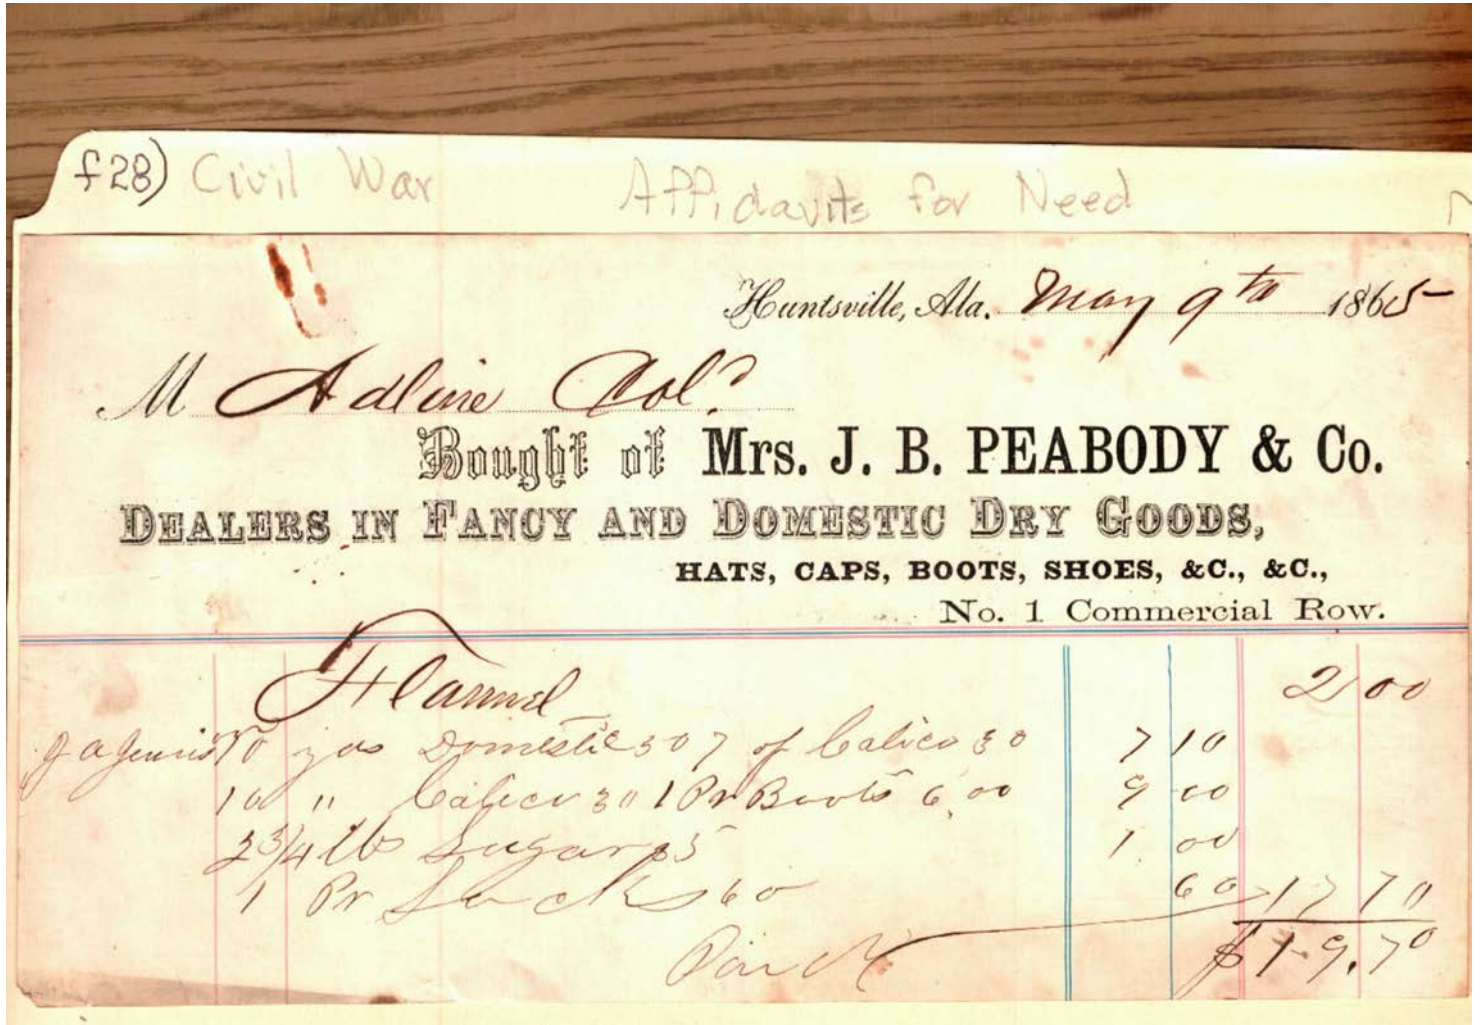 f28) Civil War Affidavits for Need
Huntsville, Ala. May 9th 1865
M Adline Cold
Bought of Mrs. J. B. PEABODY & Co.
DEALERS IN FANCY AND DOMESTIC DRY GOODS,
HATS, CAPS, BOOTS, SHOES, &C., &C.,
No. 1 Commercial Row.
Flannel 2 00
10 yds Domestic 50 7 of Calico 30 7 10
10 " Calico 30 1 Pr Boots 6,00 9 00
2 3/4 lbs Sugar 35 1 00
1 Pr Socks 60 60 17 70
$19.70